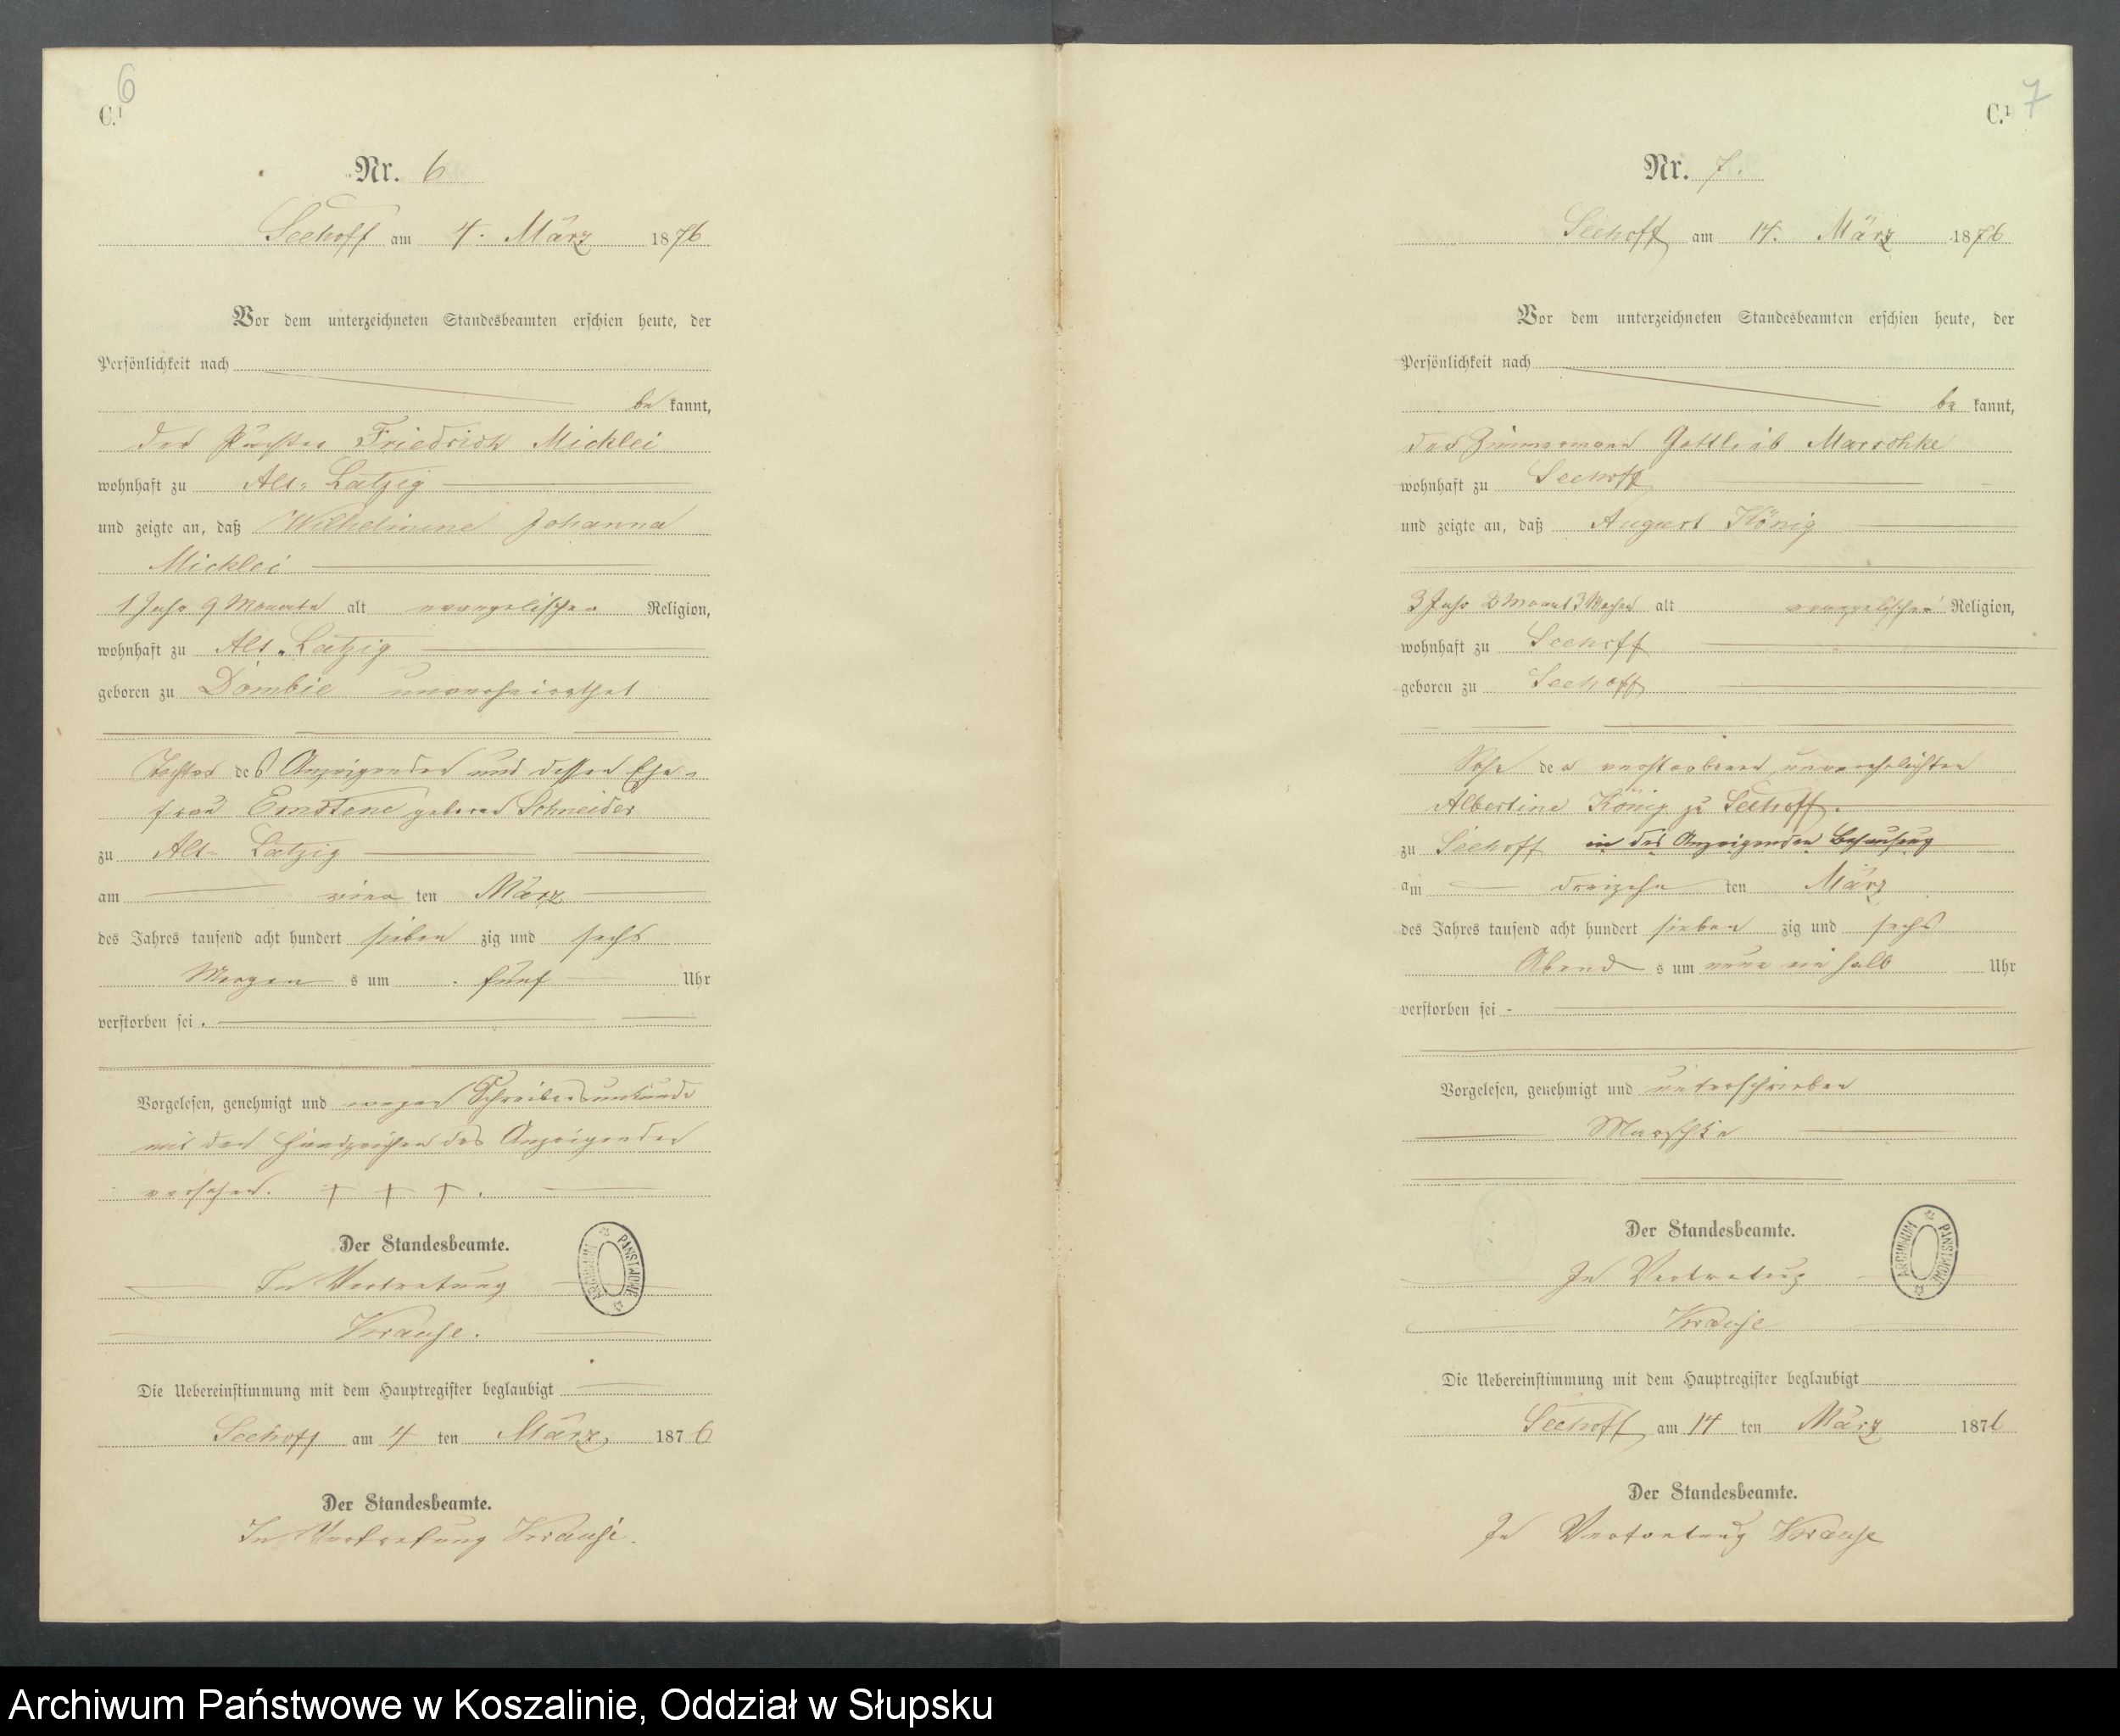 6
C.¹
Nr. 6
Seehoff am 4. März 1876
Vor dem unterzeichneten Standesbeamten erschien heute, der
Persönlichkeit nach
be kannt,
der Pächter Friedrich Micklei
wohnhaft zu Alt-Latzig
und zeigte an, daß Wilhelmine Johanna
Micklei
1 Jahr 9 Monate alt evangelischer Religion,
wohnhaft zu Alt-Latzig
geboren zu Dombie unverheirathet
Tochter des Anzeigenden und dessen Ehe-
frau Ernstine geboren Schneider
zu Alt-Latzig
am vier ten März
des Jahres tausend acht hundert sieben zig und sechs
Morgen s um fünf Uhr
verstorben sei.
Vorgelesen, genehmigt und wegen Schreibensunkunde
mit den Handzeichen des Anzeigenden
versehen. + + +.
Der Standesbeamte.
In Vertretung
Krause.
Die Uebereinstimmung mit dem Hauptregister beglaubigt
Seehoff am 4 ten März 1876
Der Standesbeamte.
In Vertretung Krause.
ARCHIWUM PAŃSTWOWE
7
C.¹
Nr. 7.
Seehoff am 14. März 1876
Vor dem unterzeichneten Standesbeamten erschien heute, der
Persönlichkeit nach
be kannt,
der Zimmermann Gottlieb Marschke
wohnhaft zu Seehoff
und zeigte an, daß August König
3 Jahr 2 Monat 3 Wochen alt evangelischer Religion,
wohnhaft zu Seehoff
geboren zu Seehoff
Sohn der verstorbenen unverehelichten
Albertine König zu Seehoff.
zu Seehoff in des Anzeigenden Behausung
am dreizehn ten März
des Jahres tausend acht hundert sieben zig und sechs
Abend s um neun ein halb Uhr
verstorben sei -
Vorgelesen, genehmigt und unterschrieben
Marschke
Der Standesbeamte.
In Vertretung
Krause
Die Uebereinstimmung mit dem Hauptregister beglaubigt
Seehoff am 14 ten März 1876
Der Standesbeamte.
In Vertretung Krause
ARCHIWUM PAŃSTWOWE
Archiwum Państwowe w Koszalinie, Oddział w Słupsku